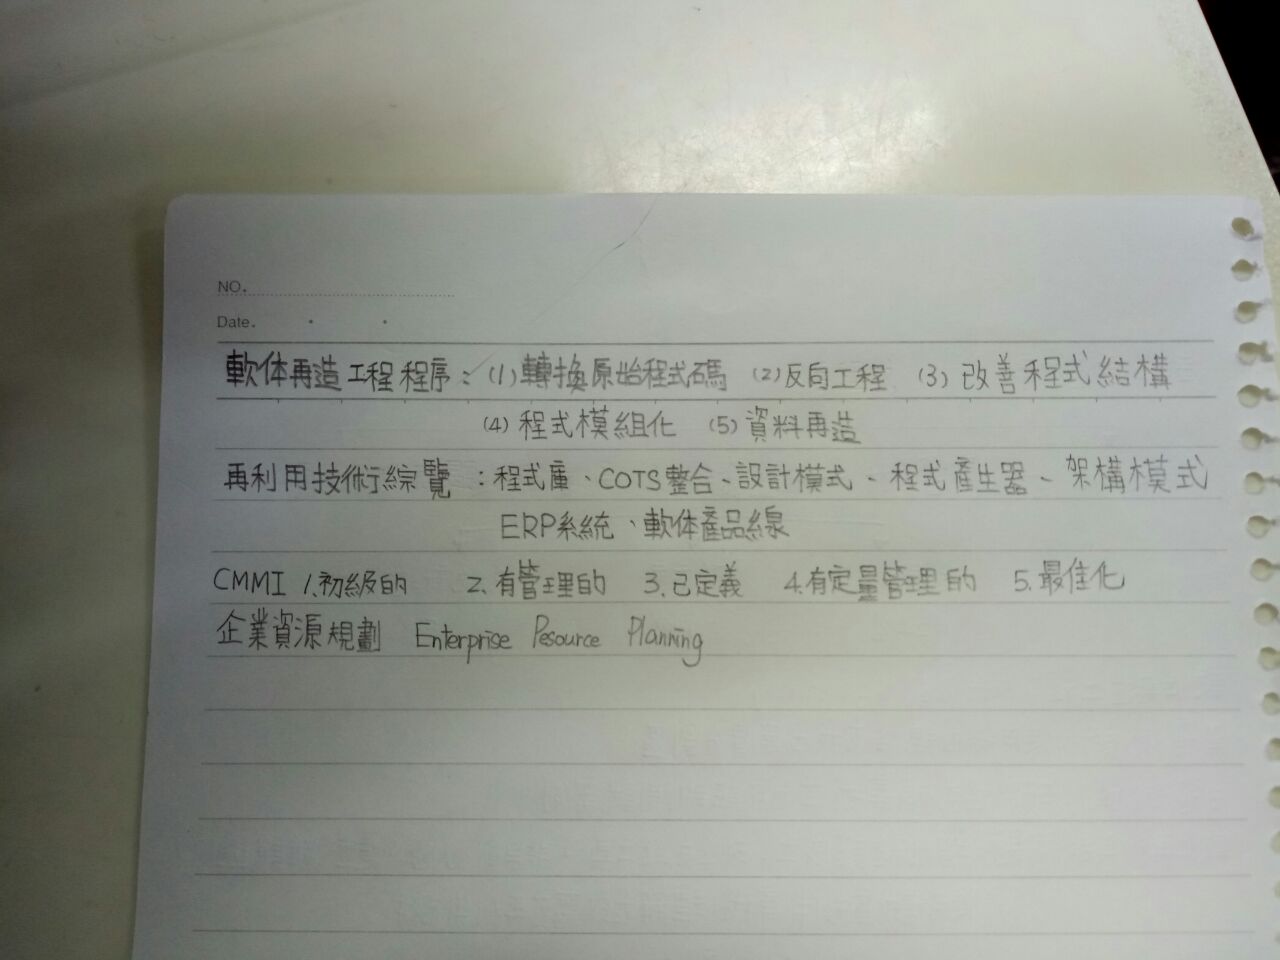 NO.
Date.
軟体再造工程程序:(1)轉換原始程式碼 (2)反向工程 (3)改善程式結構
(4)程式模組化 (5)資料再造
再利用技術綜覽:程式庫、COTS整合、設計模式、程式產生器、架構模式
ERP系統、軟体產品線
CMMI 1.初級的 2.有管理的 3.已定義 4.有定量管理的 5.最佳化
企業資源規劃 Enterprise Resource Planning